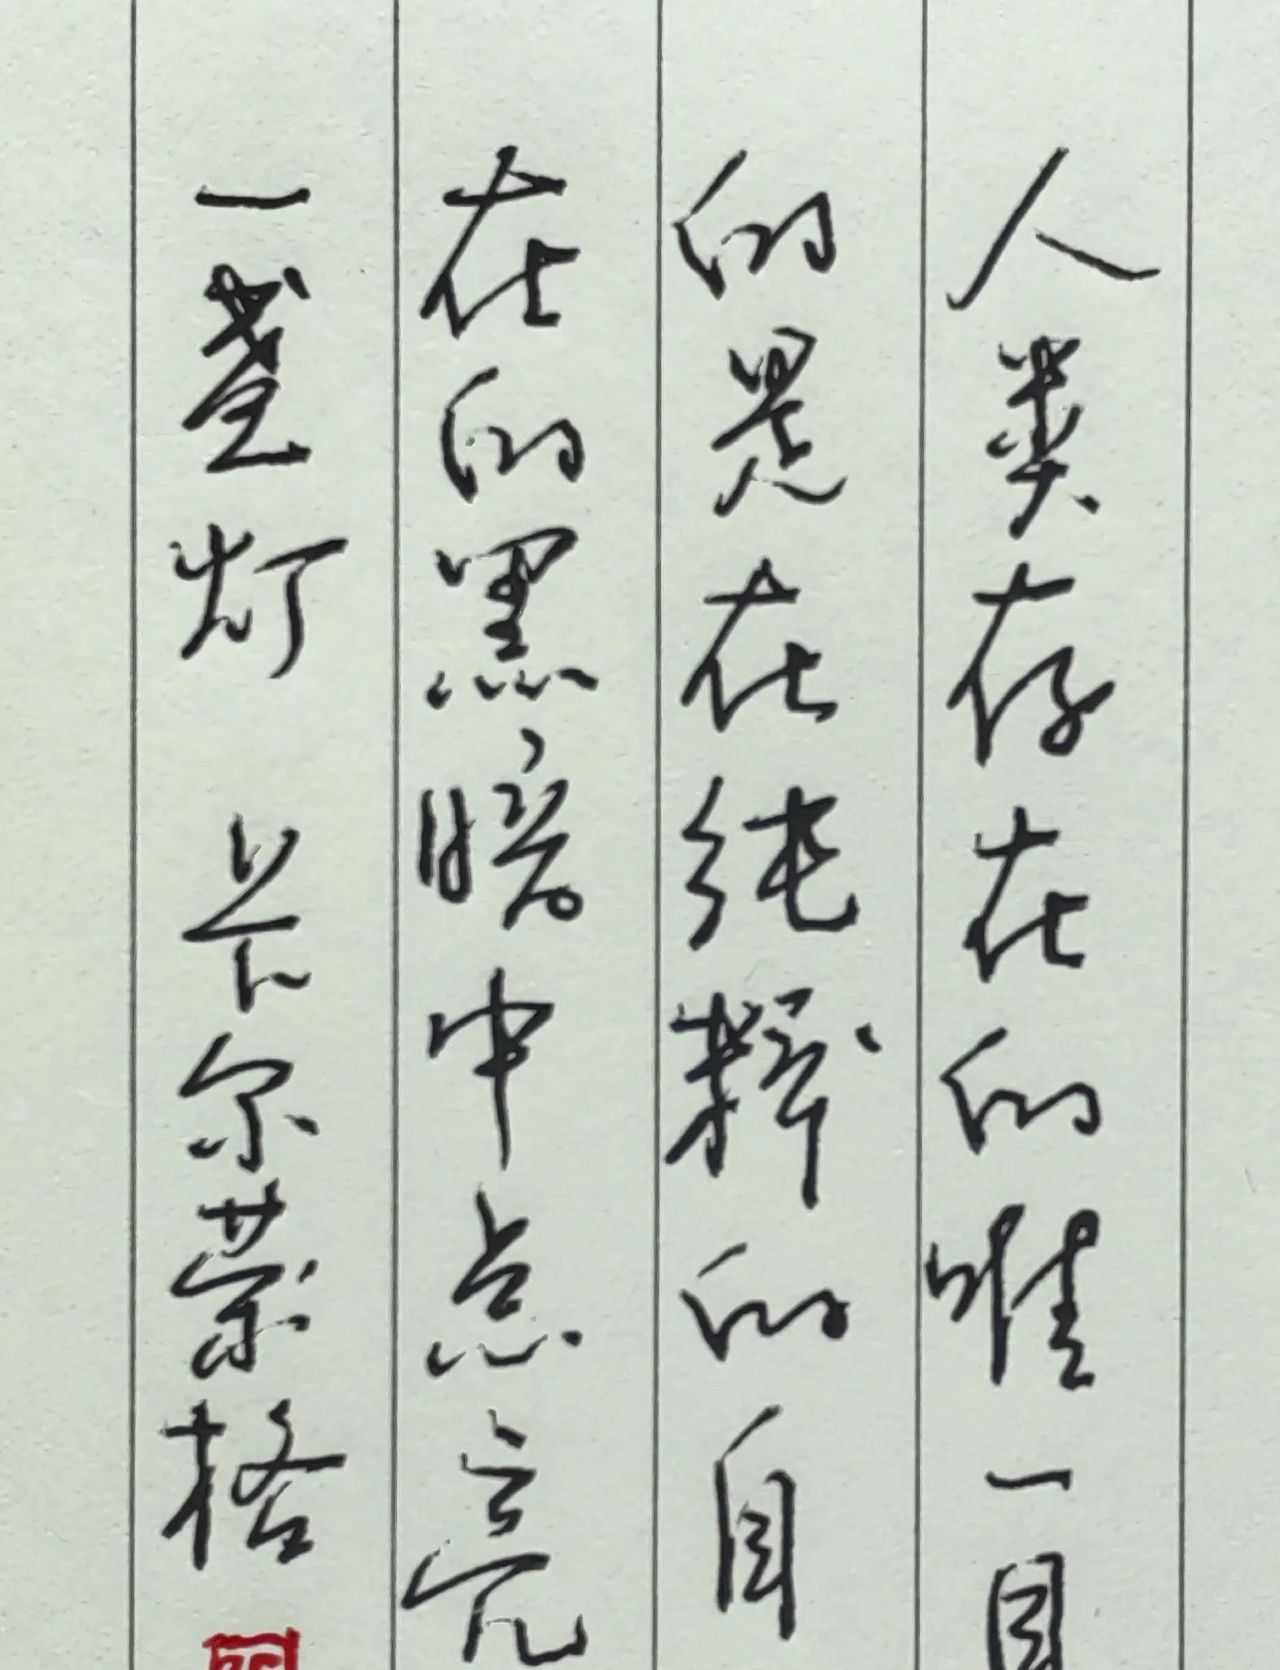 人类存在的唯一目
的是在纯粹的自
在的黑暗中点亮
一盏灯 卡尔荣格